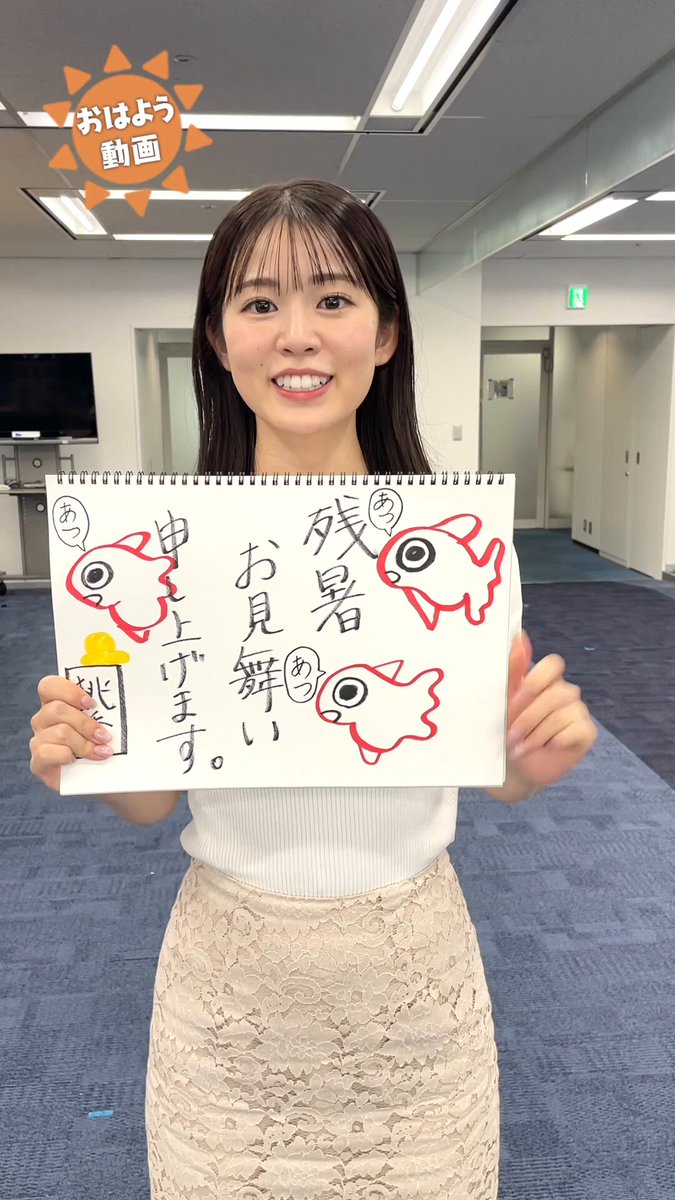 おはよう
動画
残暑
お見舞い
申し上げます。
あつ
あつ
あつ